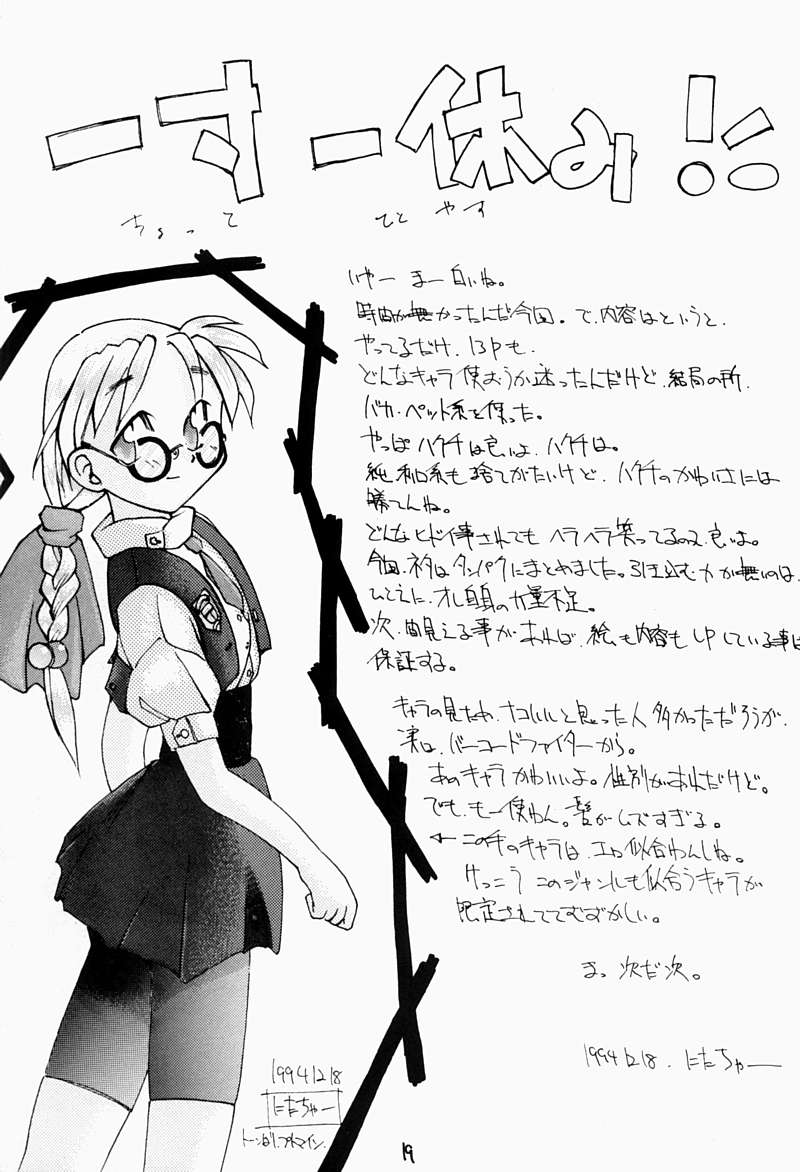 一寸一休み!!
ちょっと ひとやす
いやー まー 白いね。
時間が無かったんだ今回。で、内容はというと、
やってるだけ、13Pも、
どんなキャラ使おうか迷ったんだけど、結局の所、
バカ・ペット系を使った。
やっぱハクチは良いよ、ハクチは。
純和口系も捨てがたいけど、ハクチのかわいさには
勝てんね。
どんなヒドイ事されてもヘラヘラ笑ってるので、良いよ。
今回、ネタはタンパクにまとめました。引き込む力が無いのは、
ひとえに、オレ自身の力量不足。
次、間見える事があれば、絵も内容もUPしている事は
保証する。
キャラの見たわ、ナコいいと思った人多かっただろうが、
実は、バーコードファイターから。
あのキャラかわいいよ。性別があれだけど。
でも、もー使わん。髪がムズすぎる。
← この手のキャラは、エロ似合わんしね。
けっこうこのジャンルも似合うキャラが
限定されててむずかしい。
まっ 次だ次。
1994 12 18. にたちゃー
1994 12 18
にたちゃー
19